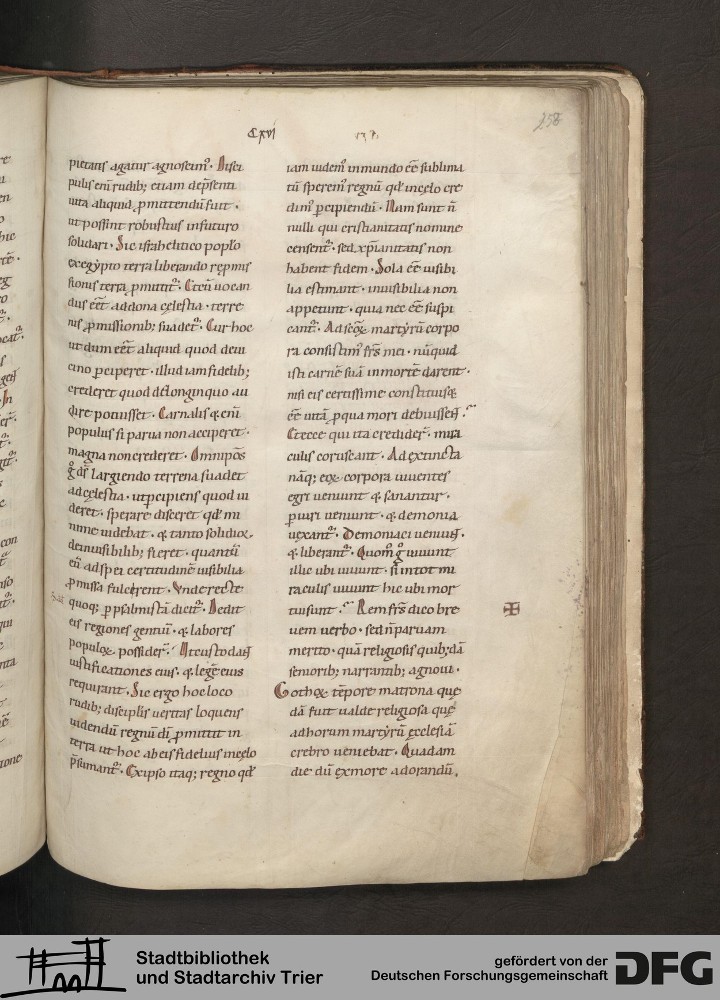 CXVI
258
pietatis agatur agnoscim᷒. Disci
pulis enī rudib; etiam dep̄senti
uita aliquid ꝓmittendū fuit.
ut possint robustius infuturo
solidari. Sic israhelitico poplo
exegypto terra liberando rep̄mis
sionis terra ꝓmittit᷒. Et cū uocan
dus eēt addona cęlestia. terre
nis ꝓmissionib; suadet᷒. Cur hoc
ut dum eēt aliquid quod deui
cino ꝑciperet. illud iam fidelib;
crederet quod delonginquo au
dire potuisset. Carnalis q. enī
populus si parua non acciperet.
magna non crederet. Omnipōs
g̊ ds̄ largiendo terrena suadet
ad cęlestia. ut ꝑcipiens quod ui
deret. sperare disceret qd̄ mi
nime uidebat. & tanto solidior
deinuisibilib; fieret. quantū
eū ad spei certitudinē uisibilia
ꝓmissa fulcirent. Vnde recte
quoq; ꝑ psalmistā dicit᷒. Dedit
eis regiones gentiū. & labores
populoꝝ possider᷒. Ut custodiaꞇ̄
iustificationes eius. & legē eius
requirant. Sic ergo hoc loco
rudib; disciplis ueritas loquens
uidendū regnū dī ꝓmittit in
terra ut hoc ab eis fidelius incęlo
p̄sumant᷒. Ex ipso itaq; regno qd̄
iam uidem᷒ in mundo eē sublima
tū sperem᷒ regnū qd̄ incęlo cre
dim᷒ ꝑcipiendū. Nam sunt ñ
nulli qui cristianitatis nomine
censent᷒. sed xp̄ianitatis non
habent fidem. Sola eē uisibi
lia estimant. inuisibilia non
appetunt. quia nec eē suspi
cant᷒. Ad scōꝝ martyrū corpo
ra consistim᷒ frs̄ mei. nūquid
isti carnē suā in mortē darent.
nisi eis certissime constitisset
eē uitā ꝓ qua mori debuissent.
Et ecce qui ita credider᷒. mira
culis coruscant. Ad extincta
nāq; eoꝝ corpora uiuentes
egri ueniunt & sanantur.
ꝑiuri ueniunt. & demonia
uexant᷒. Demoniaci ueniunt.
& liberant᷒. Quom̊ g̊ uiuunt
illic ubi uiuunt. si in tot mi
raculis uiuunt hic ubi mor
tui sunt. Rem frs̄ dico bre
uem uerbo. sed ñ paruam
merito. quā religiosis quib;dā
seniorib; narrantib; agnoui.
Gothoꝝ tēpore matrona quę
dā fuit ualde religiosa quę
ad horum martyrū ęcclesiā
crebro ueniebat. Quadam
die dū ex more adorandū.
Stadtbibliothek
und Stadtarchiv Trier
gefördert von der
Deutschen Forschungsgemeinschaft
DFG